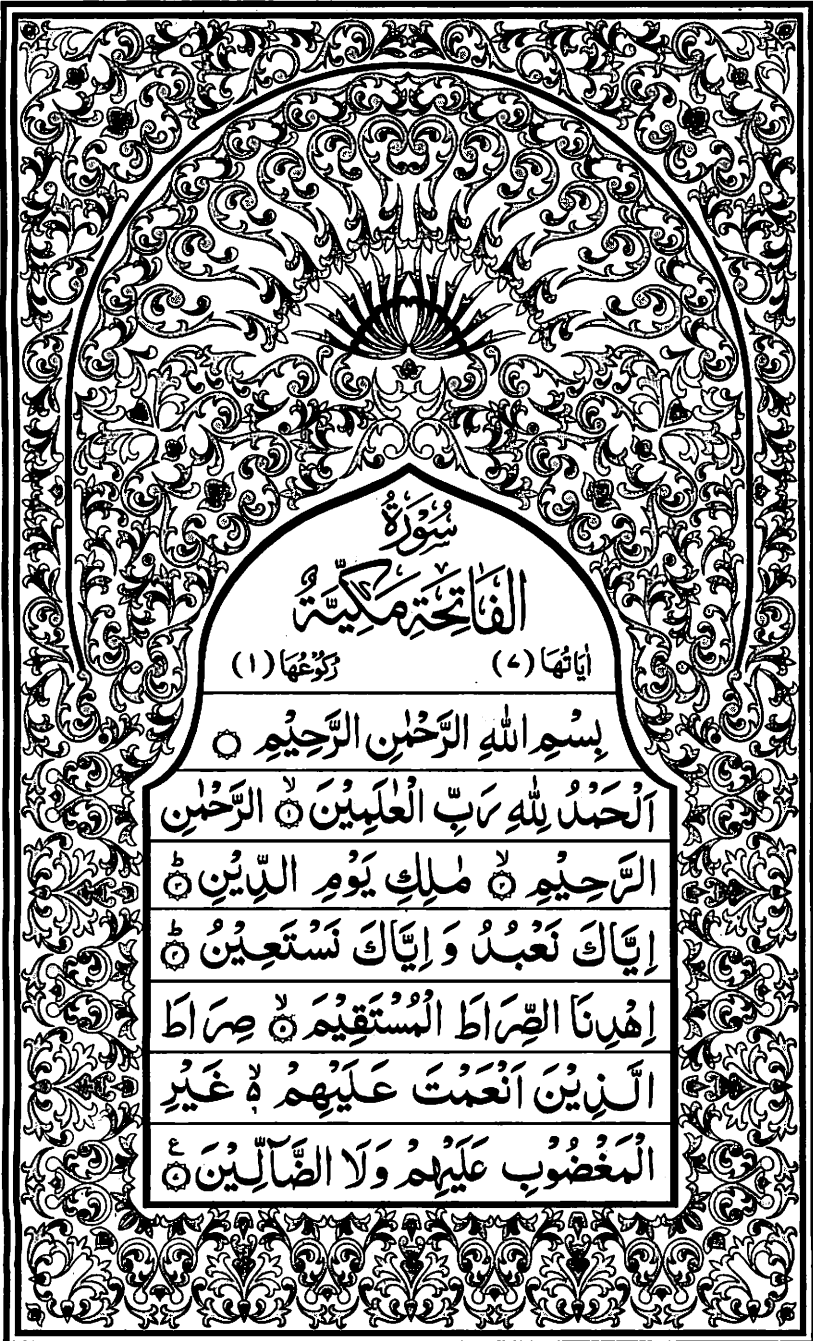 سُوْرَةُ
الفَاتِحَةِ مَكِّيَّةٌ
اٰيَاتُهَا (٧) رُكُوْعُهَا (١)
بِسْمِ اللّٰهِ الرَّحْمٰنِ الرَّحِيْمِ ۝
اَلْحَمْدُ لِلّٰهِ رَبِّ الْعٰلَمِيْنَ ۙ‏﴿١﴾ الرَّحْمٰنِ
الرَّحِيْمِ ۙ‏﴿٢﴾ مٰلِكِ يَوْمِ الدِّيْنِ ؕ‏﴿٣﴾
اِيَّاكَ نَعْبُدُ وَ اِيَّاكَ نَسْتَعِيْنُ ؕ‏﴿٤﴾
اِهْدِنَا الصِّرَاطَ الْمُسْتَقِيْمَ ۙ‏﴿٥﴾ صِرَاطَ
الَّذِيْنَ اَنْعَمْتَ عَلَيْهِمْ ۙ۬ غَيْرِ
الْمَغْضُوْبِ عَلَيْهِمْ وَلَا الضَّآلِّيْنَ ﴿٧﴾ ع